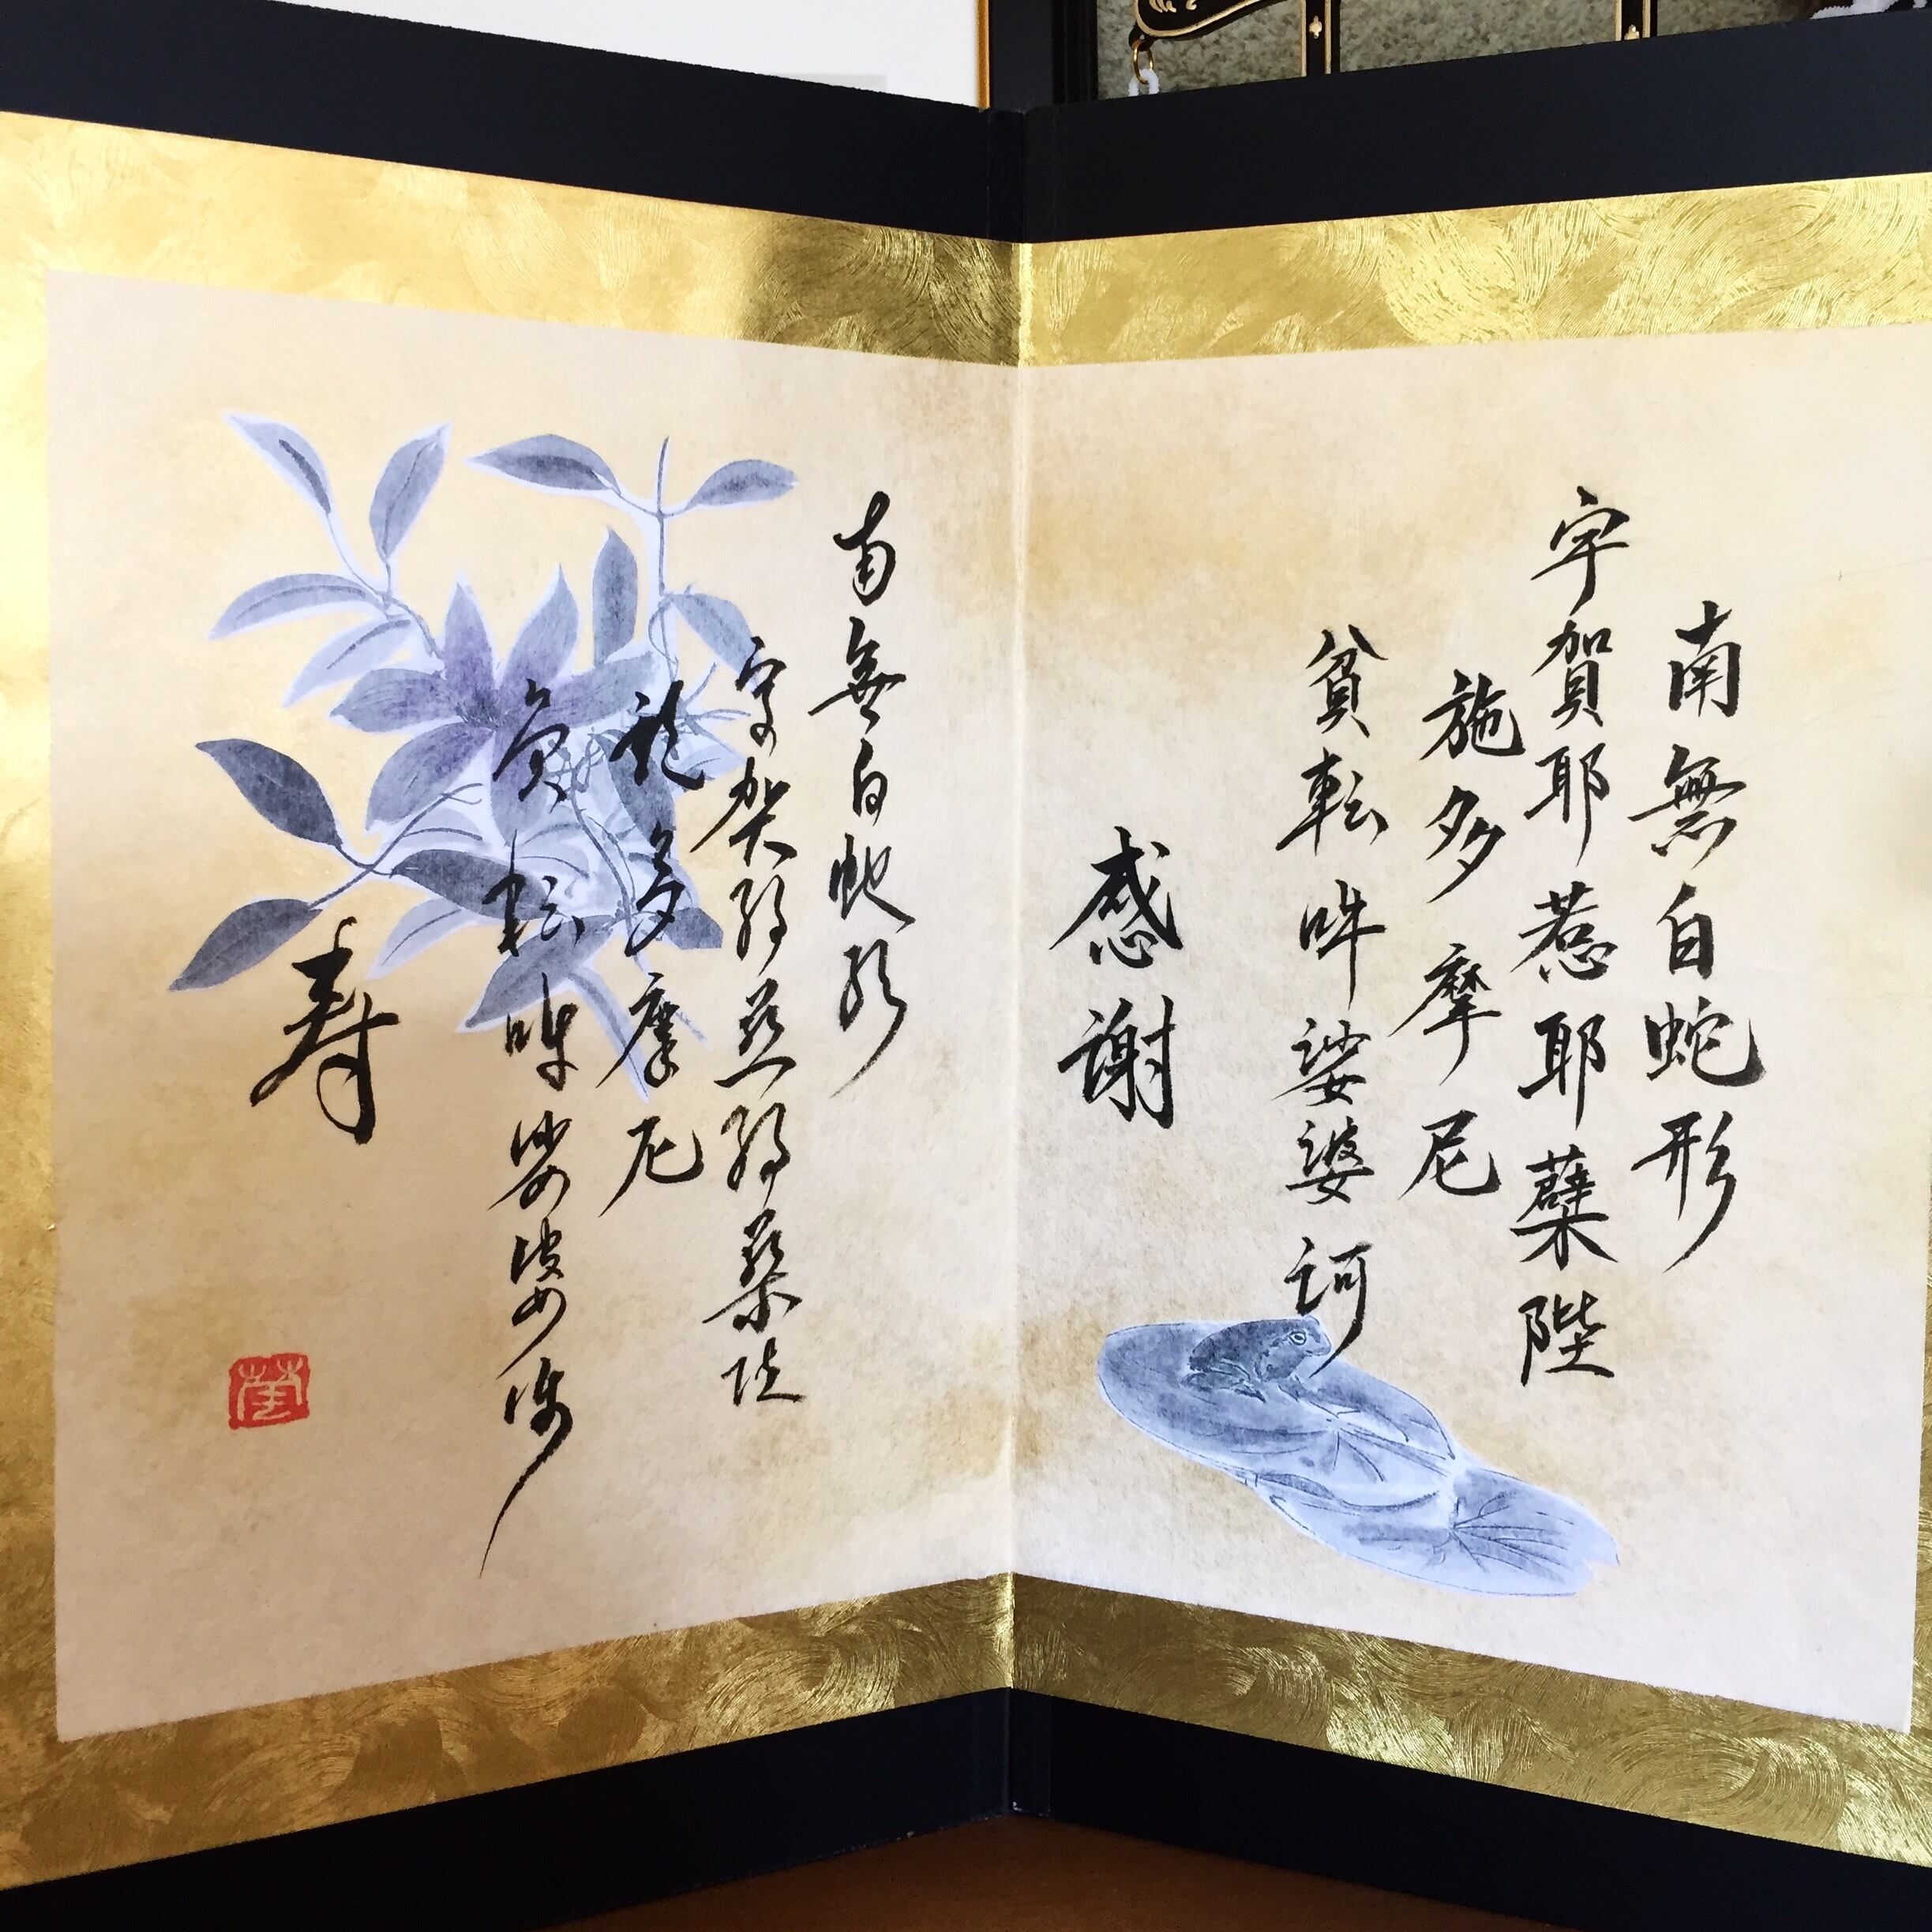 南無白蛇形
宇賀耶惹耶蘖陛
施多摩尼
貧転吽娑婆訶
感謝
南無白蛇形
宇賀耶惹耶蘖陛
施多摩尼
貧転吽娑婆訶
寿